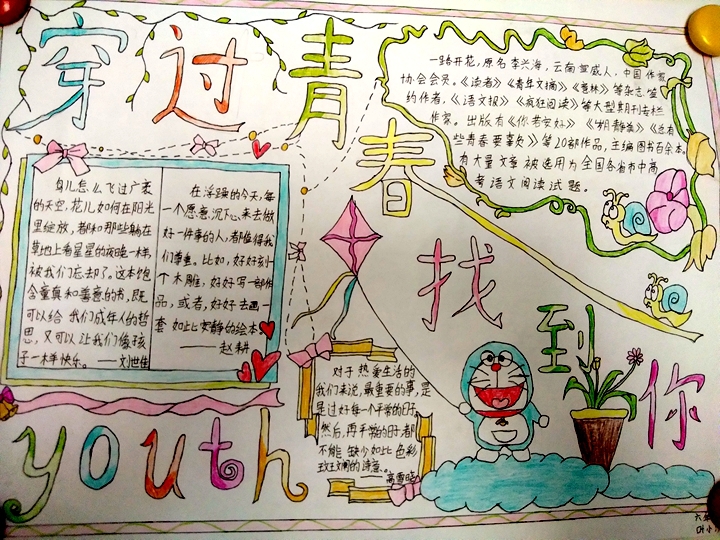 穿过青春找到你
一路开花,原名李兴海,云南宣威人,中国作家
协会会员。《读者》《青年文摘》《意林》等杂志签
约作者,《语文报》《疯狂阅读》等大型期刊专栏
作家。出版有《你若安好》《岁月静美》《总有
些青春要辜负》等20部作品,主编图书百余本。
有大量文章被选用为全国各省市中高
考语文阅读试题。
鸟儿怎么飞过广袤
的天空,花儿如何在阳光
里绽放,都和那些躺在
草地上看星星的夜晚一样,
被我们忘却了。这本饱
含童真和善意的书,既
可以给我们成年人的哲
思,又可以让我们像孩
子一样快乐。——刘世佳
在浮躁的今天,每
一个愿意沉下心来去做
好一件事的人,都值得我
们尊重。比如,好好刻一
个木雕,好好写一部作
品,或者,好好去画一
套如此安静的绘本。
——赵耕
对于热爱生活的
我们来说,最重要的事,是
是过好每一个平常的日子。
然后,再平常的日子,都
不能缺少如此色彩
斑斓的诗意。
——高雪晓
youth